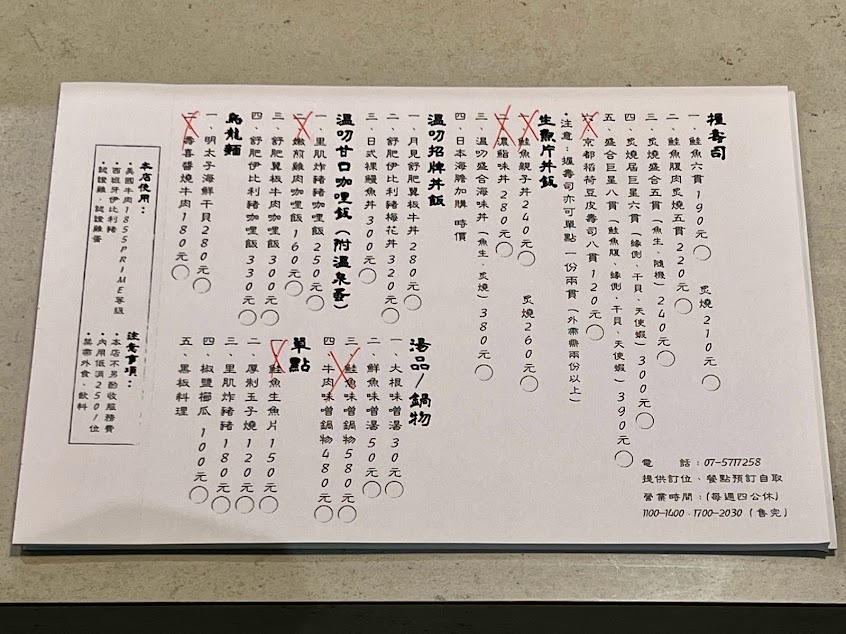 握壽司
一、鮭魚六貫190元 炙燒210元
二、鮭魚腹肉炙燒五貫220元
三、炙燒盛合五貫(魚生、隨機)240元
四、炙燒屆巨星六貫(緣側、干貝、天使蝦)300元
五、盛合巨星八貫(鮭魚腹、緣側、干貝、天使蝦)390元
六、京都稻荷豆皮壽司八貫120元
*注意:握壽司亦可單點 一份兩貫(外帶需兩份以上)
生魚片丼飯
一、鮭魚親子丼240元 炙燒260元
二、漬鮨味丼280元
三、溫叨盛合海味丼(魚生、炙燒)380元
四、日本海膽加購 時價
溫叨招牌丼飯
一、月見舒肥翼板牛丼280元
二、舒肥伊比利豬梅花丼320元
三、日式裸鰻魚丼300元
溫叨甘口咖哩飯(附溫泉蛋)
一、里肌炸豬咖哩飯250元
二、嫩煎雞肉咖哩飯160元
三、舒肥翼板牛肉咖哩飯300元
四、舒肥伊比利豬咖哩飯330元
烏龍麵
一、明太子海鮮干貝280元
二、壽喜醬燒牛肉180元
湯品/鍋物
一、大根味噌湯30元
二、鮮魚味噌湯50元
三、鮭魚味噌鍋物580元
四、牛肉味噌鍋物480元
單點
一、鮭魚生魚片150元
二、厚制玉子燒120元
三、里肌炸豬排180元
四、椒鹽櫛瓜 100元
五、黑板料理
本店使用:
*美國牛肉1855PRIME等級
*西班牙伊比利豬
*認證雞、認證雞蛋
注意事項:
*本店不另酌收服務費
*內用低消250/位
*禁帶外食、飲料
電 話:07-5717258
提供訂位、餐點預訂自取
營業時間:(每週四公休)
1100-1400、1700-2030(售完)